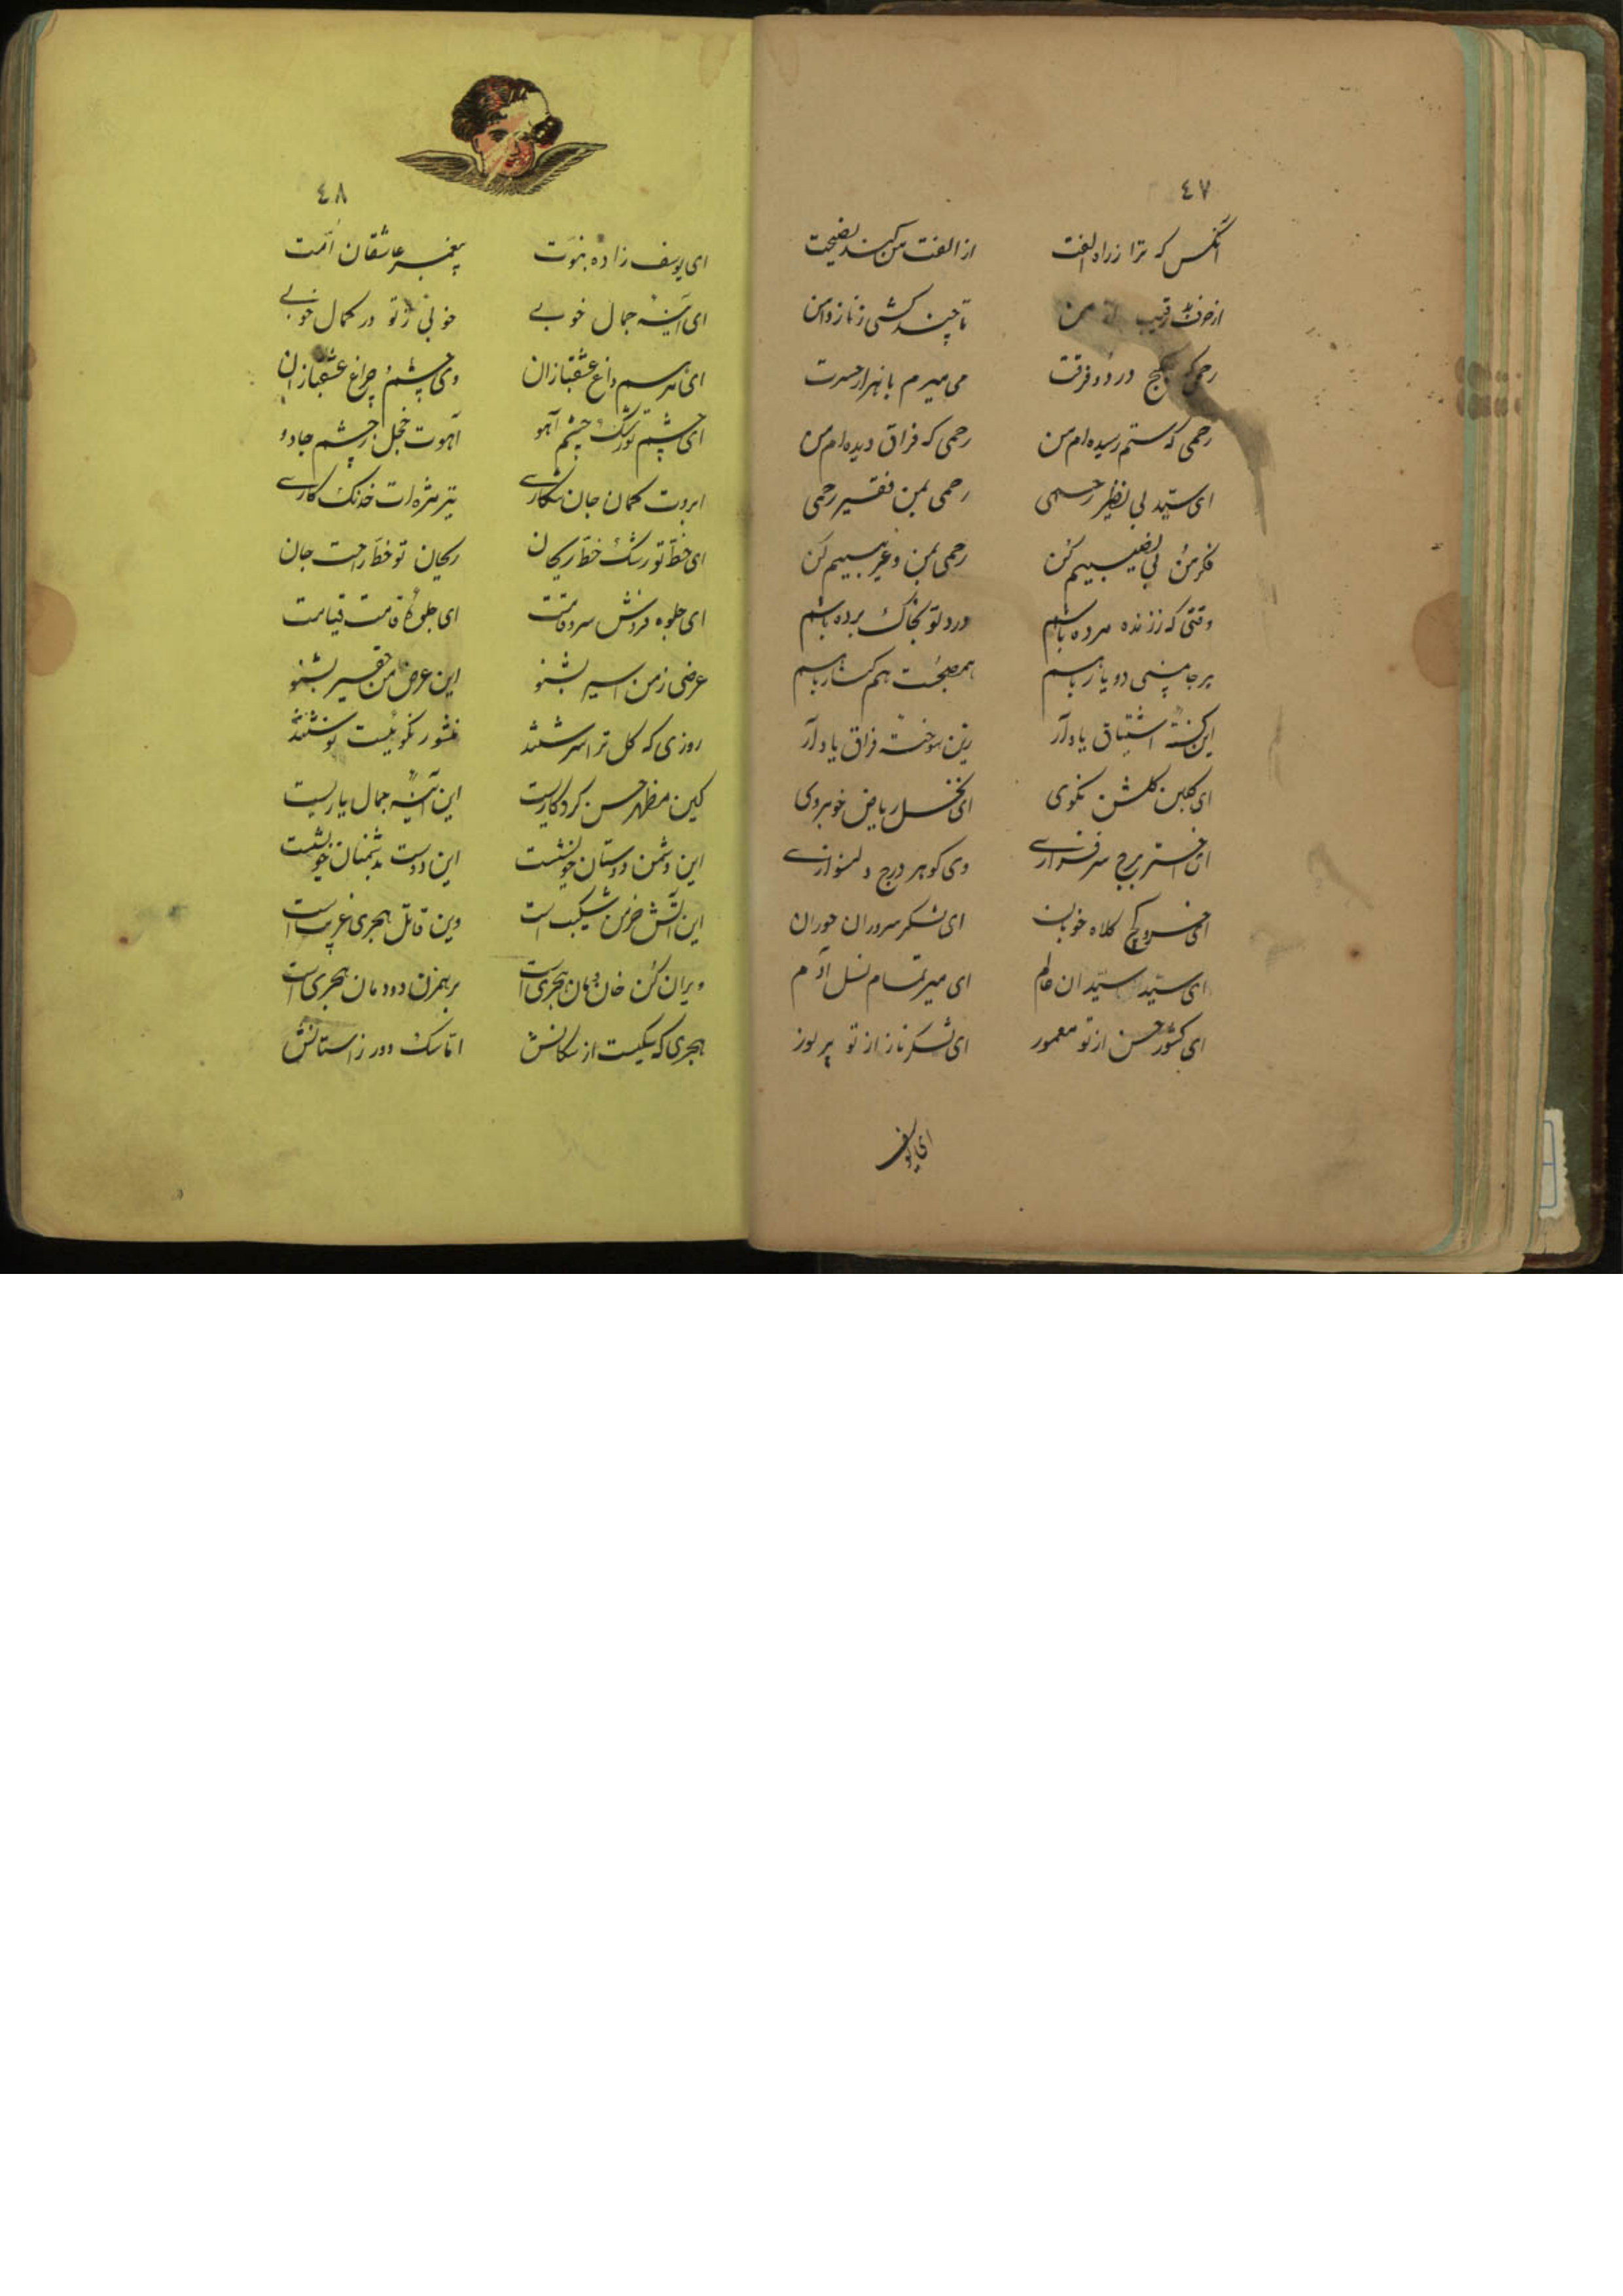 ٤٧
آنکس که ترا ز راه الفت از الفت من کند نصیحت
از حرف رقیب من تا چند کشی ز ناز دامن
رحمی که بکنج درد و فرقت می میرم با هزار حسرت
رحمی که ستم رسیده ام من رحمی که فراق دیده ام من
ای سید بی نظیر رحمی رحمی بمن فقیر رحمی
فکر من بی نصیبیم کن رحمی بمن و غریبیم کن
وقتی که ز زنده مرده باشم درد تو بخاک برده باشم
هر جا بینی دو یار باهم همصحبت و هم کنار باهم
این کشتهٔ اشتیاق یاد آر زین سوختهٔ فراق یاد آر
ای گلبن گلشن نکوی ای نخل ریاض خوبروی
ای اختر برج سرفرازے وی گوهر درج دلنوازے
ای خسرو کج کلاه خوبان ای سرور حوران
ای سید سیدان عالم ای میر تمام نسل آدم
ای کشور حسن از تو معمور ای لشکر ناز از تو پر نور
ای یوسف
٤٨
ای یوسف زاده نبوّت پیغمبر عاشقان اُمّت
ای آینهٔ جمال خوبے خوبی ز تو در کمال خوبے
ای مرهم داغ عشقبازان وی چشم و چراغ عشقبازان
ای چشم تو رشک چشم آهو آهوت خجل ز چشم جادو
ابروت کمان جان شکارے تیر مژه ات خدنگ کارے
ای خطّ تو رشک خطّ ریحان ریحان تو خطّ راحت جان
ای جلوه فروش سرو قامت ای جلوگاه قامت قیامت
عرضی ز من اسیر بشنو این عرض من حقیر بشنو
روزی که گل ترا سرشتند منشور نکوئیت نوشتند
کین مظهر حسن کردگاریست این آینهٔ جمال یاریست
این دشمن دوستان خویشست این دوست بدشمنان خویشست
این آتش خرمن شکیب است وین قاتل هجری غریب است
ویران کن خان و مان هجری است برهمزن دودمان هجری است
هجری که یکیست از سگانش اما سگ دور ز آستانش